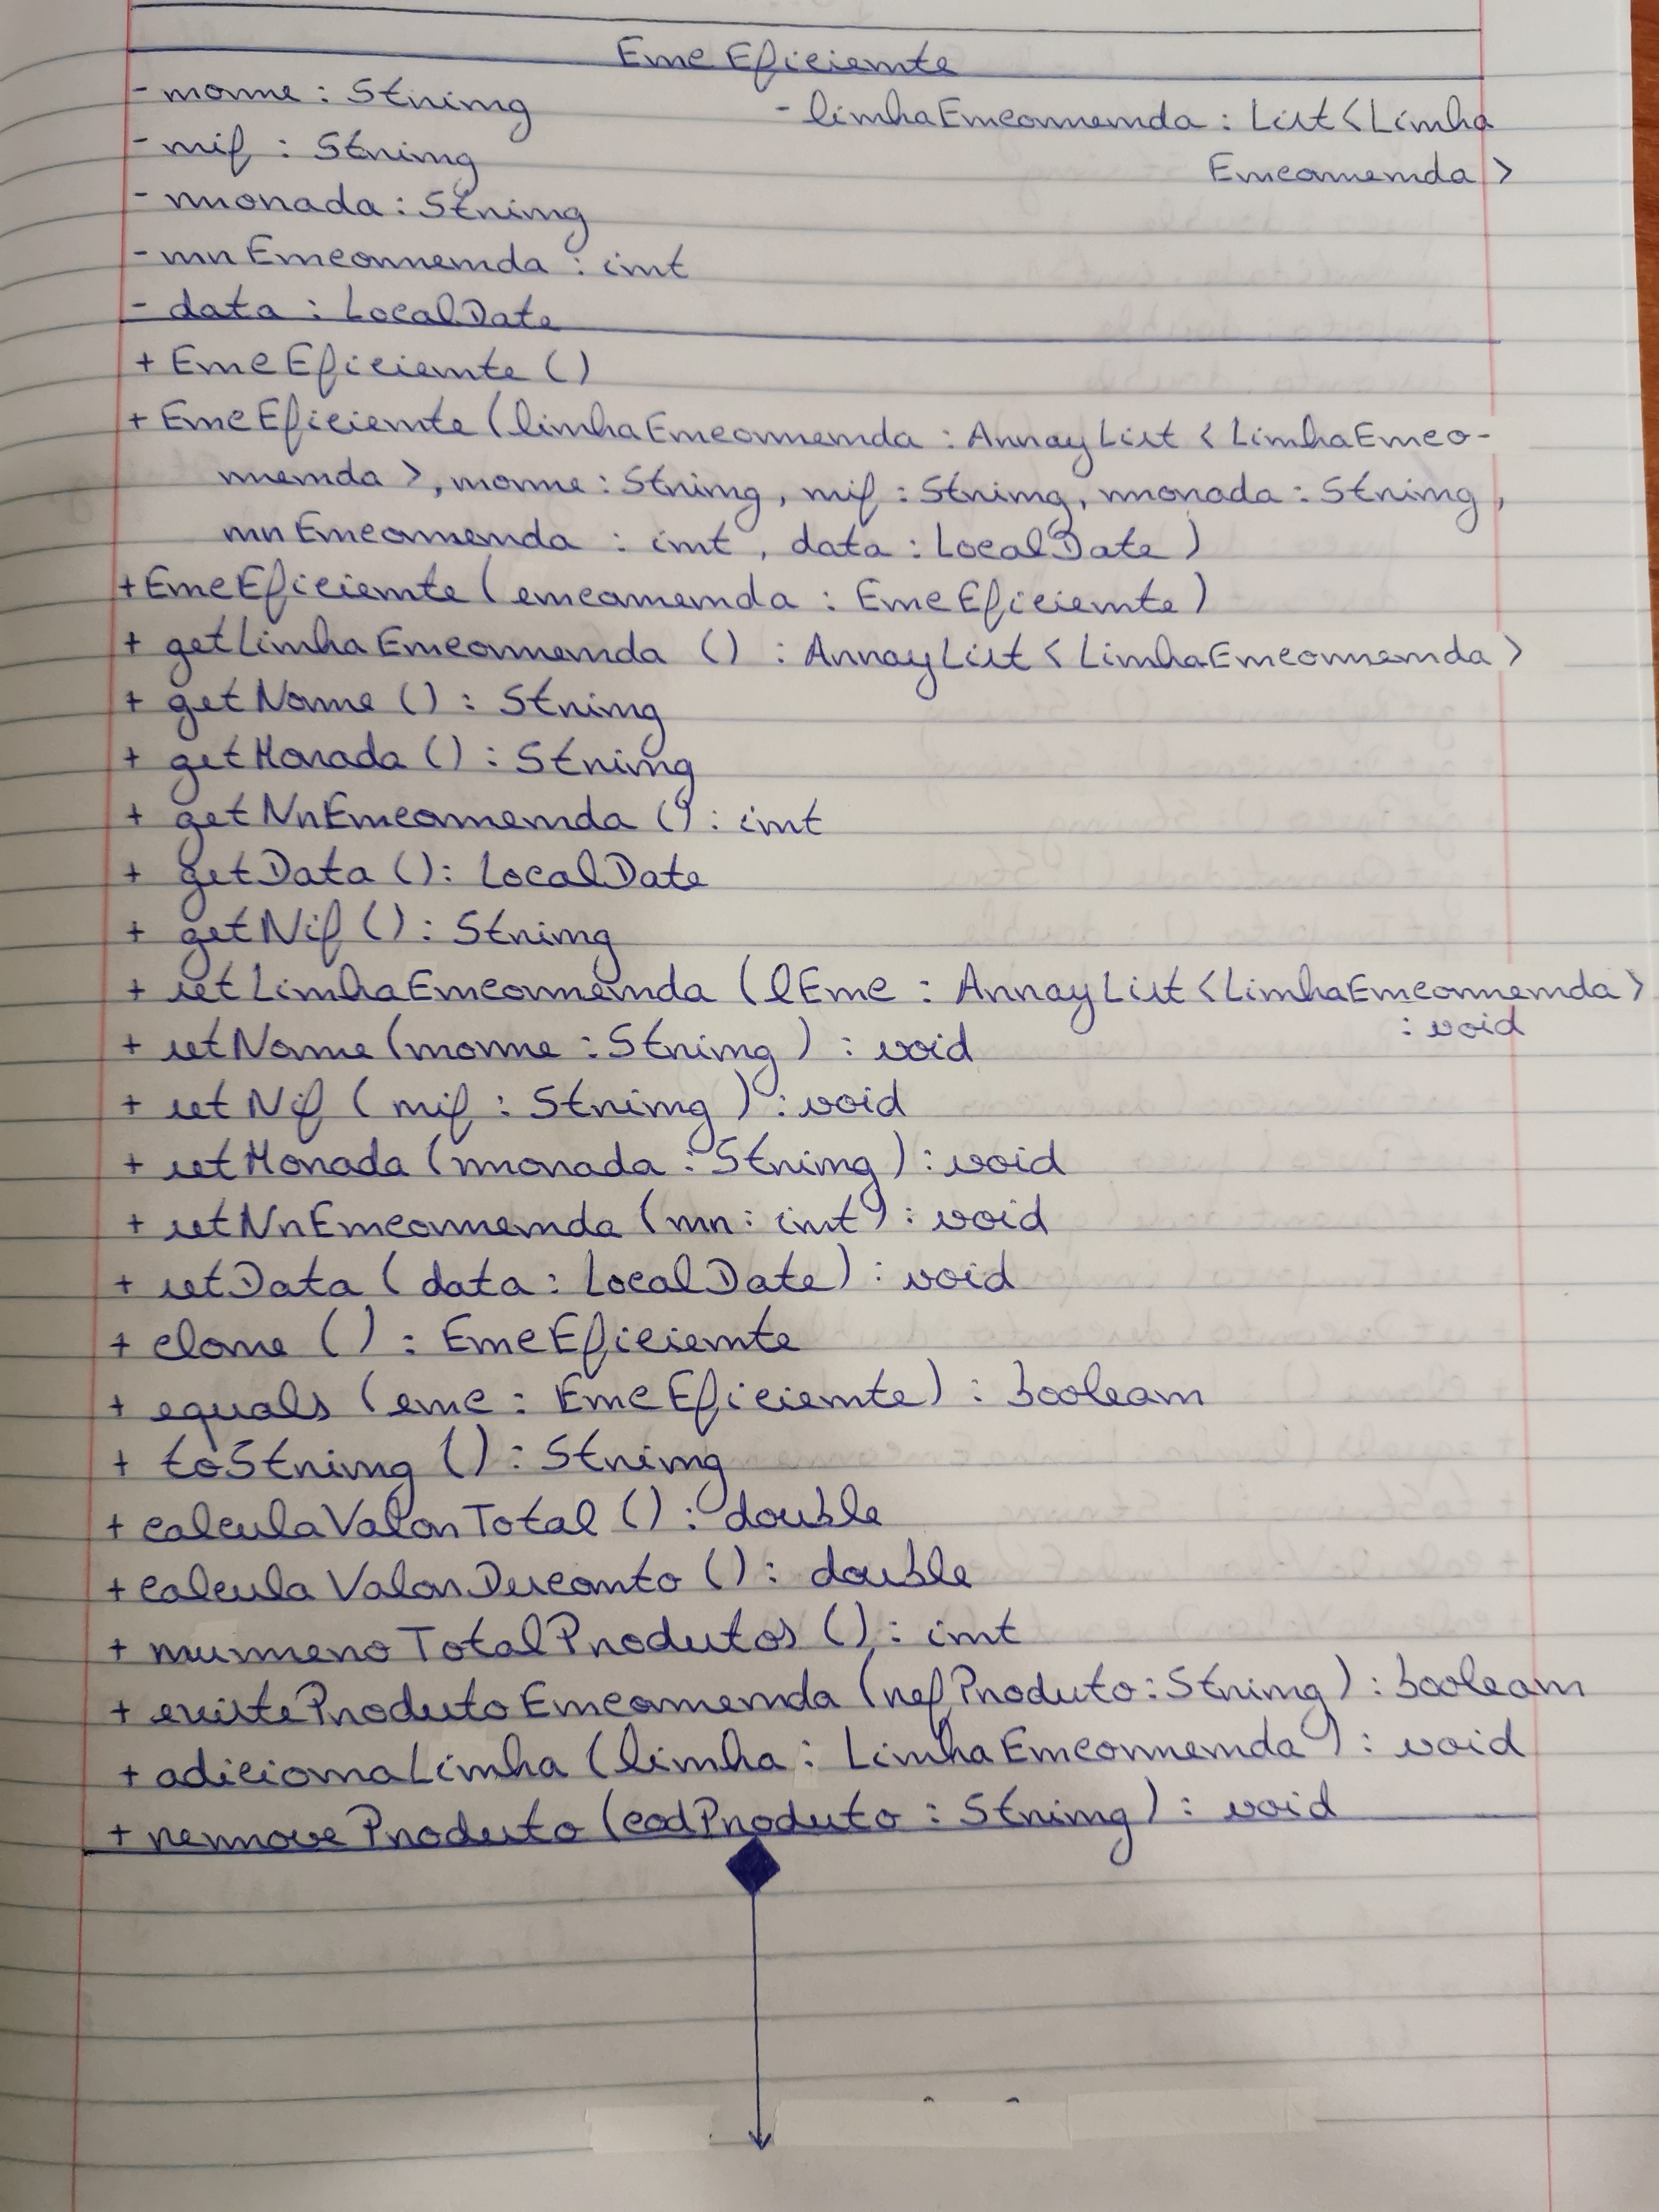 EncEficiente
- nome : String
- nif : String
- morada : String
- nrEncomenda : int
- data : LocalDate
- linhaEncomenda : List<Linha
Encomenda>
+ EncEficiente ()
+ EncEficiente (linhaEncomenda : ArrayList <LinhaEnco-
menda >, nome : String, nif : String, morada : String,
nrEncomenda : int, data : LocalDate)
+ EncEficiente (encomenda : EncEficiente)
+ getLinhaEncomenda () : ArrayList < LinhaEncomenda >
+ getNome () : String
+ getMorada () : String
+ getNrEncomenda () : int
+ getData () : LocalDate
+ getNif () : String
+ setLinhaEncomenda (lEnc : ArrayList <LinhaEncomenda>
: void
+ setNome (nome : String) : void
+ setNif (nif : String) : void
+ setMorada (morada : String) : void
+ setNrEncomenda (nr : int) : void
+ setData (data : LocalDate) : void
+ clone () : EncEficiente
+ equals (enc : EncEficiente) : boolean
+ toString () : String
+ calculaValorTotal () : double
+ calculaValorDesconto () : double
+ numeroTotalProdutos () : int
+ existeProdutoEncomenda (refProduto : String) : boolean
+ adicionaLinha (linha : LinhaEncomenda) : void
+ removeProduto (codProduto : String) : void